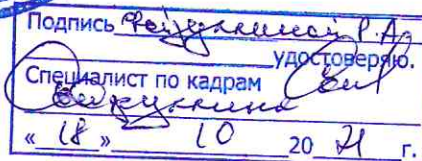 Подпись Р.А.
удостоверяю.
Специалист по кадрам
« 18 » 10 20 21 г.